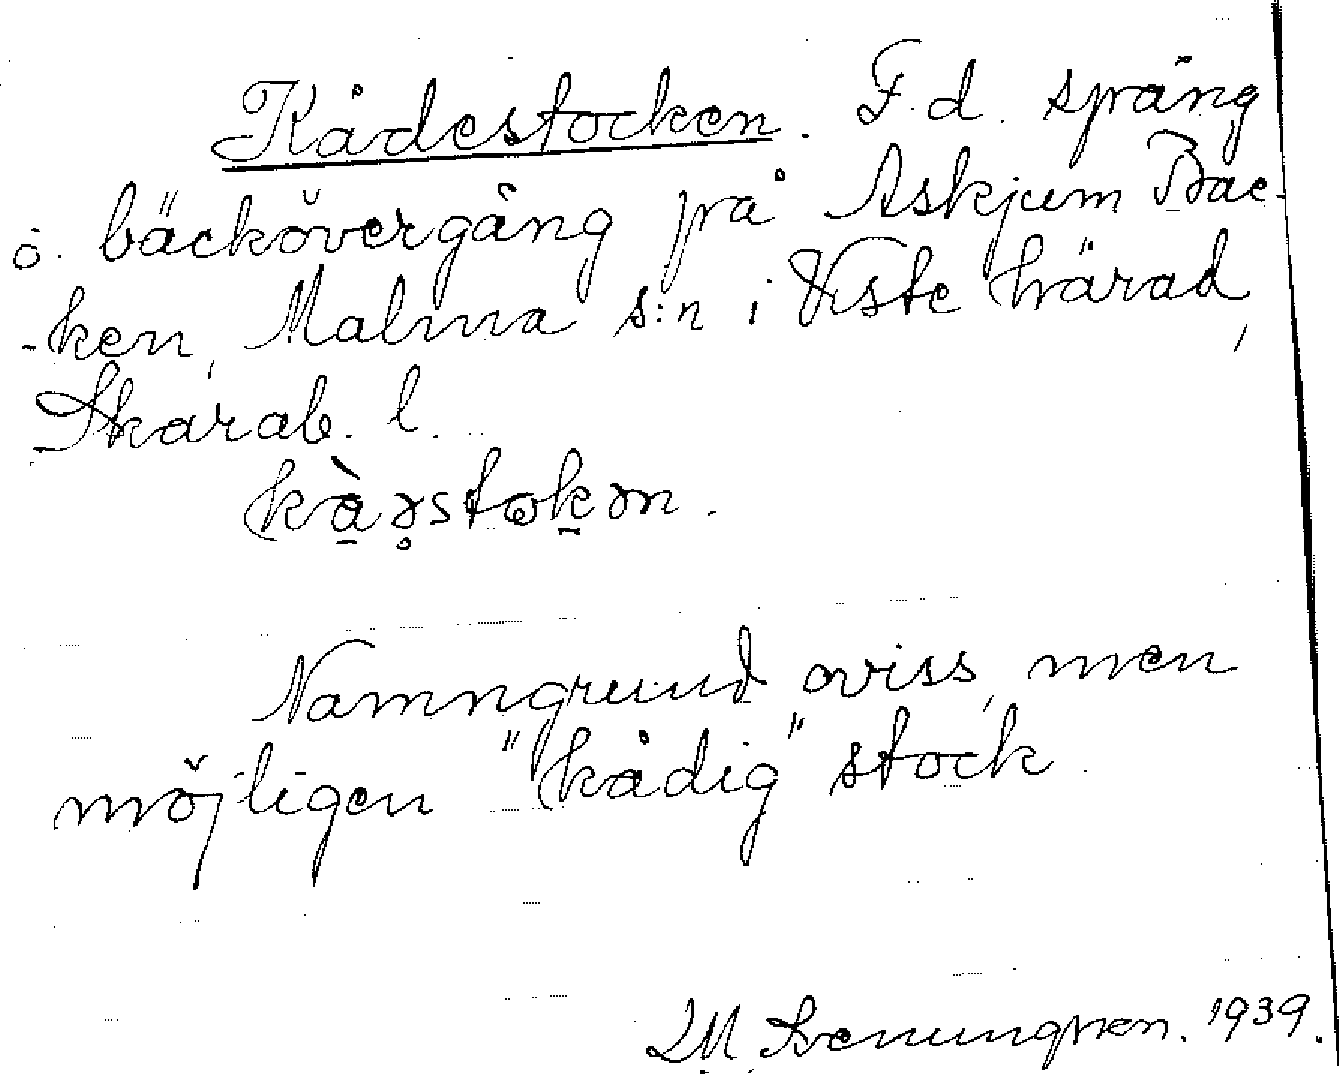 Kådestocken. F.d. spång
o. bäckövergång på Askjum Bac-
-ken, Malma s:n i Viste härad,
Skarab. l.
kàrstokən.
Namngrund oviss, men
möjligen "kådig" stock.
1939.